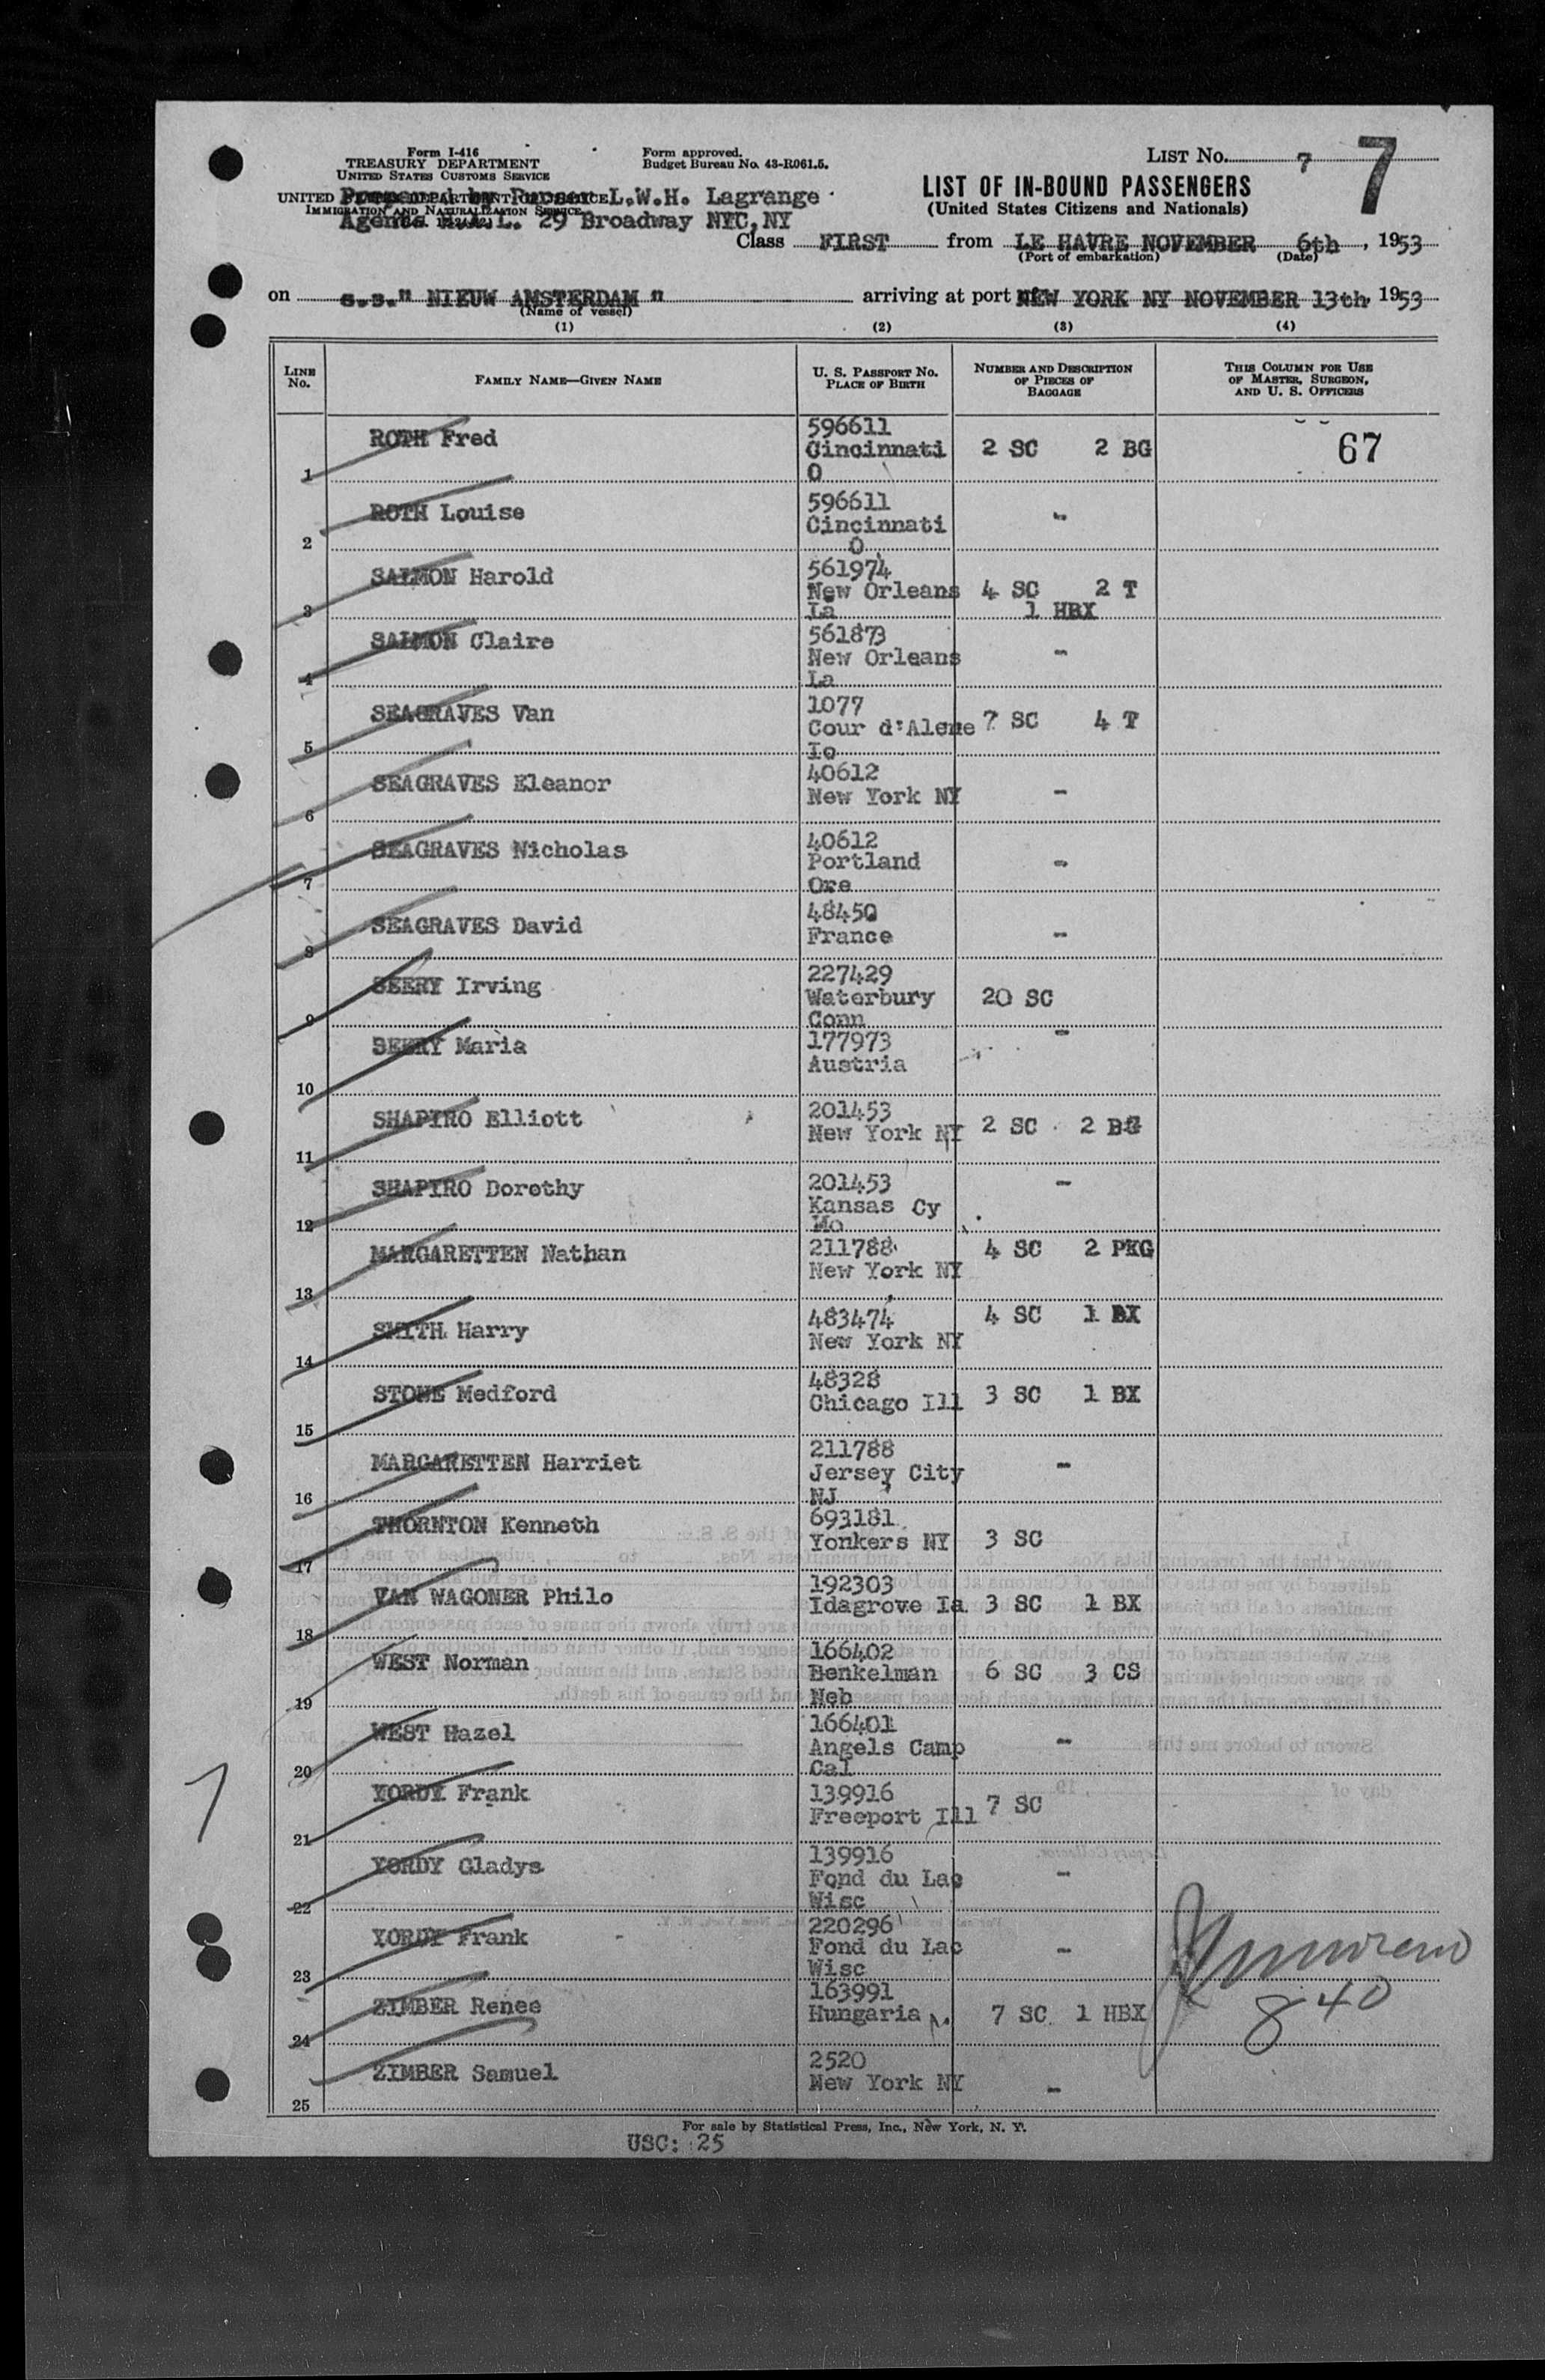 Form I-416
TREASURY DEPARTMENT
UNITED STATES CUSTOMS SERVICE
Form approved.
Budget Bureau No. 43-R061.5.
LIST No. 7
7
UNITED Prepared by Purser L.W.H. Lagrange
IMMIGRATION AND NATURALIZATION SERVICE
Agents H.A.L. 29 Broadway NYC, NY
LIST OF IN-BOUND PASSENGERS
(United States Citizens and Nationals)
Class FIRST from LE HAVRE NOVEMBER 6th, 1953
(Port of embarkation) (Date)
on s.s." NIEUW AMSTERDAM " arriving at port NEW YORK NY NOVEMBER 13th, 1953
(Name of vessel)
(1) (2) (3) (4)
LINE No.
FAMILY NAME—GIVEN NAME
U. S. PASSPORT NO.
PLACE OF BIRTH
NUMBER AND DESCRIPTION
OF PIECES OF
BAGGAGE
THIS COLUMN FOR USE
OF MASTER, SURGEON,
AND U. S. OFFICERS
1 ROTH Fred 596611 Cincinnati O 2 SC 2 BG 67
2 ROTH Louise 596611 Cincinnati O -
3 SALMON Harold 561974 New Orleans La 4 SC 2 T 1 HBX
4 SALMON Claire 561873 New Orleans La -
5 SEAGRAVES Van 1077 Cour d'Alene Io 7 SC 4 T
6 SEAGRAVES Eleanor 40612 New York NY -
7 SEAGRAVES Nicholas 40612 Portland Ore -
8 SEAGRAVES David 48450 France -
9 SEERY Irving 227429 Waterbury Conn 20 SC
10 SEERY Maria 177973 Austria -
11 SHAPIRO Elliott 201453 New York NY 2 SC 2 BG
12 SHAPIRO Dorothy 201453 Kansas Cy Mo -
13 MARGARETTEN Nathan 211788 New York NY 4 SC 2 PKG
14 SMITH Harry 483474 New York NY 4 SC 1 BX
15 STONE Medford 48328 Chicago Ill 3 SC 1 BX
16 MARGARETTEN Harriet 211788 Jersey City NJ -
17 THORNTON Kenneth 693181 Yonkers NY 3 SC
18 VAN WAGONER Philo 192303 Idagrove Ia 3 SC 1 BX
19 WEST Norman 166402 Benkelman Neb 6 SC 3 CS
20 WEST Hazel 166401 Angels Camp Cal -
21 YORDY Frank 139916 Freeport Ill 7 SC
22 YORDY Gladys 139916 Fond du Lac Wisc -
23 YORDY Frank 220296 Fond du Lac Wisc -
24 ZIMBER Renee 163991 Hungaria 7 SC 1 HBX
840
25 ZIMBER Samuel 2520 New York NY -
For sale by Statistical Press, Inc., New York, N. Y.
USC: 25